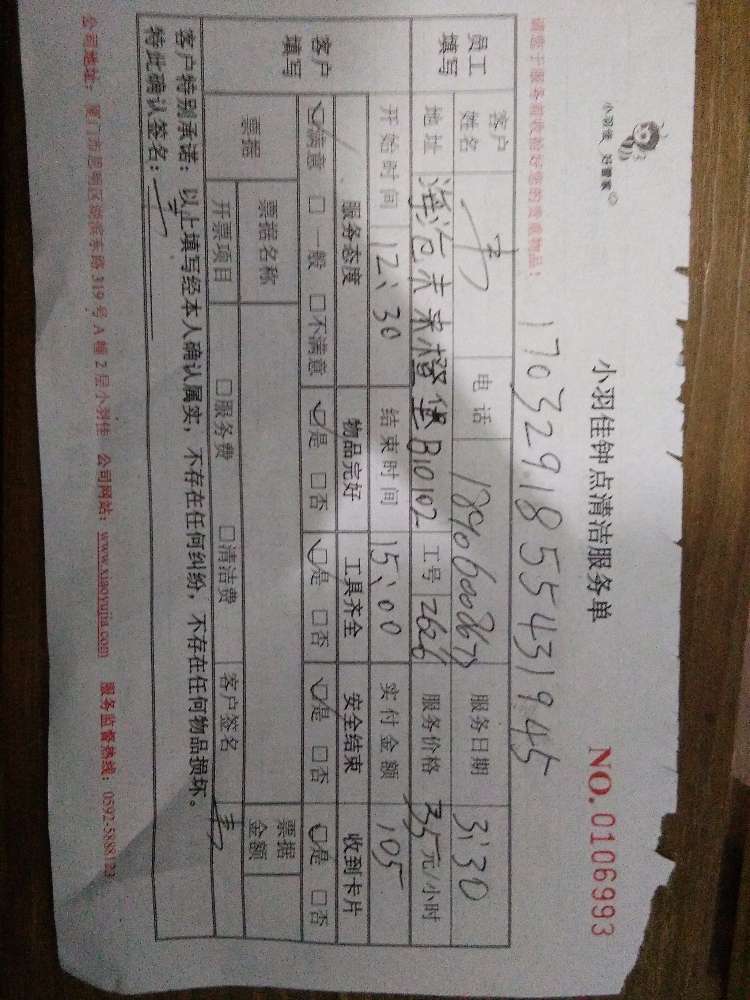 小羽佳 好管家
小羽佳钟点清洁服务单
NO.0106993
请您于服务前收拾好您的贵重物品:
170329185543 1945
员工填写
客户姓名 电话 服务日期 3:30
地址 海沧未来橙堡B10102 工号 2626 服务价格 35元/小时
开始时间 12:30 结束时间 15:00 实付金额 105
客户填写
服务态度 物品完好 工具齐全 安全结束 收到卡片
☑满意 □一般 □不满意 ☑是 □否 ☑是 □否 ☑是 □否 ☑是 □否
票据 票据名称 票据金额
开票项目 □服务费 □清洁费 客户签名
客户特别承诺:以上填写经本人确认属实,不存在任何纠纷,不存在任何物品损坏。
特此确认签名:
公司地址: 厦门市思明区湖滨东路319号A幢2层小羽佳 公司网站:www.xiaoyujia.com 服务监督热线:0592-5888123